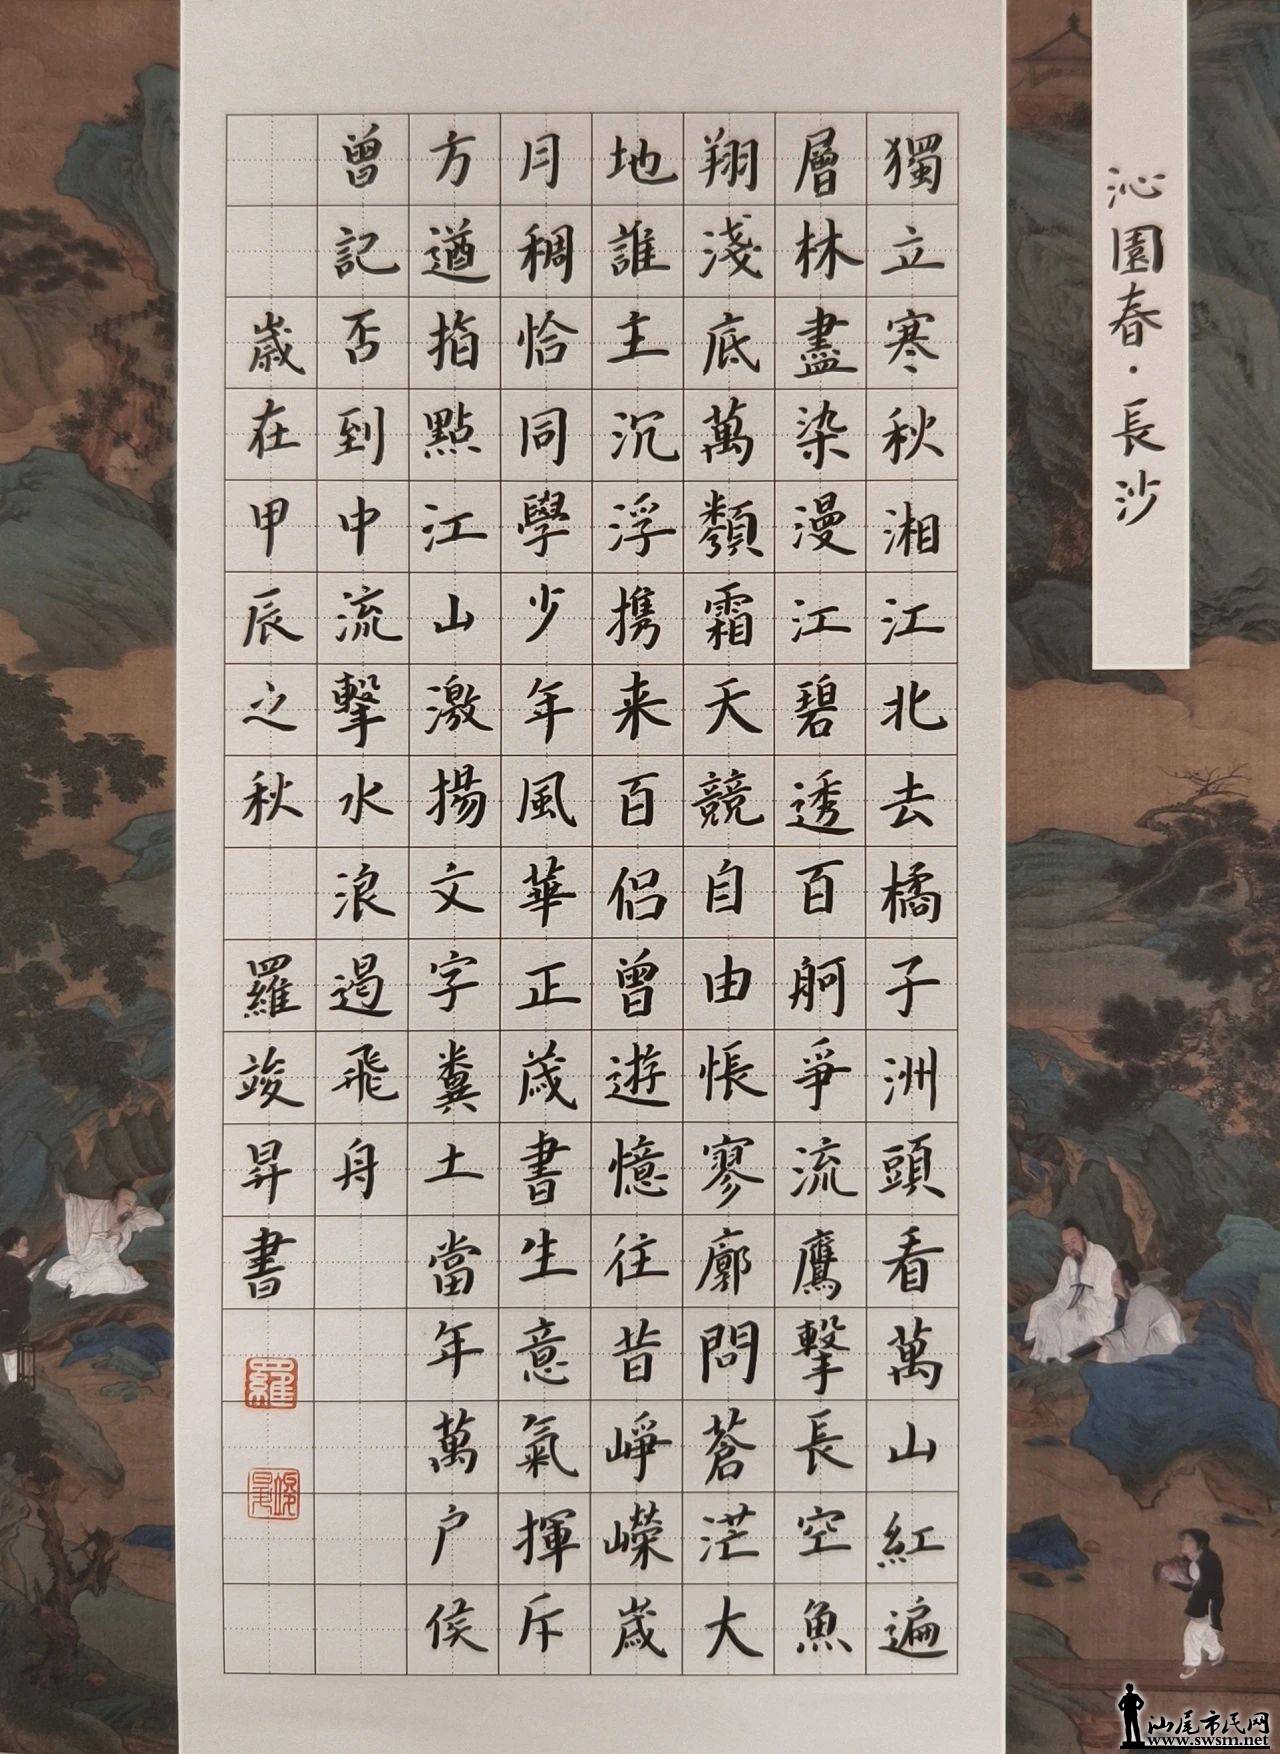 沁園春·長沙
獨立寒秋湘江北去橘子洲頭看萬山紅遍
層林盡染漫江碧透百舸爭流鷹擊長空魚
翔淺底萬類霜天競自由悵寥廓問蒼茫大
地誰主沉浮携来百侣曾遊憶往昔崢嶸歲
月稠恰同學少年風華正茂書生意氣揮斥
方遒指點江山激揚文字糞土當年萬户侯
曾記否到中流擊水浪遏飛舟
歲在甲辰之秋 羅竣昇書
羅
竣昇
汕尾市民网
www.swsm.net